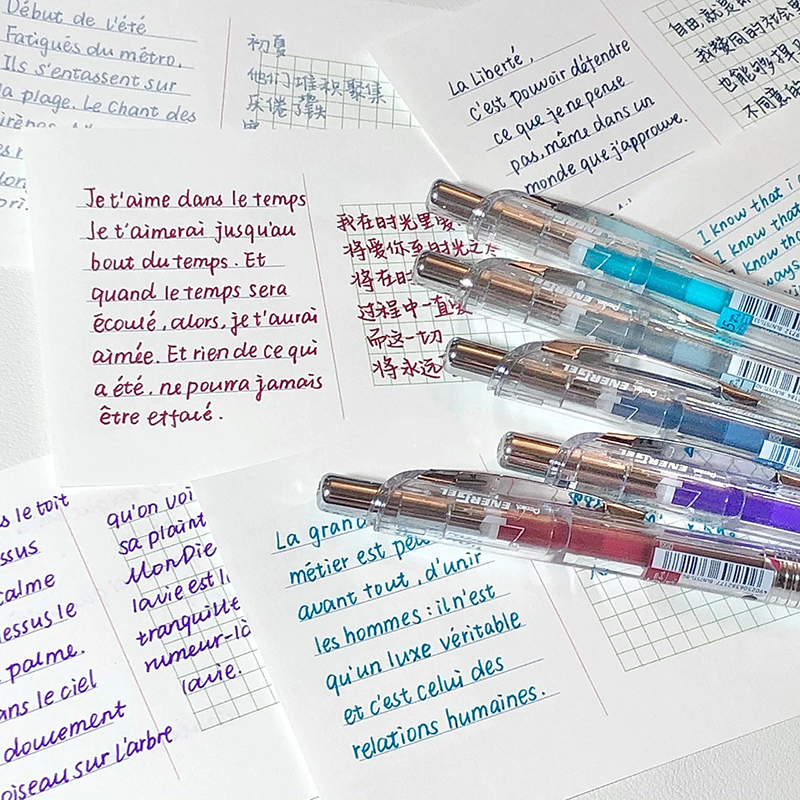 Début de l'été
Fatigués du métro,
Ils s'entassent sur
la plage. Le Chant des
初夏
他们堆积聚集
厌倦了
La Liberté,
c'est pouvoir défendre
ce que je ne pense
pas, même dans un
monde que j'approuve.
自由就是
我赞同的社会里
也能够捍卫
不同意的
I know that i
I know that
I know tha
ways
Je t'aime dans le temps
Je t'aimerai jusqu'au
bout du temps. Et
quand le temps sera
écoulé, alors, je t'aurai
aimée. Et rien de ce qui
a été, ne pourra jamais
être effacé.
我在时光里爱
将爱你至时光之
将在时
过程中一直
而这一切
将永远
s le toit
ssus
calme
essus le
palme.
ans le ciel
doucement
oiseau sur l'arbre
qu'on voi
sa plaint
Mon Die
la vie est l
tranquille
rumeur-là
la vie.
La grand
métier est peu
avant tout, d'unir
les hommes : il n'est
qu'un luxe véritable
et c'est celui des
relations humaines.
ENERGEL
ENERGEL
Pentel ENERGEL
ENERGEL
Pentel ENERGEL